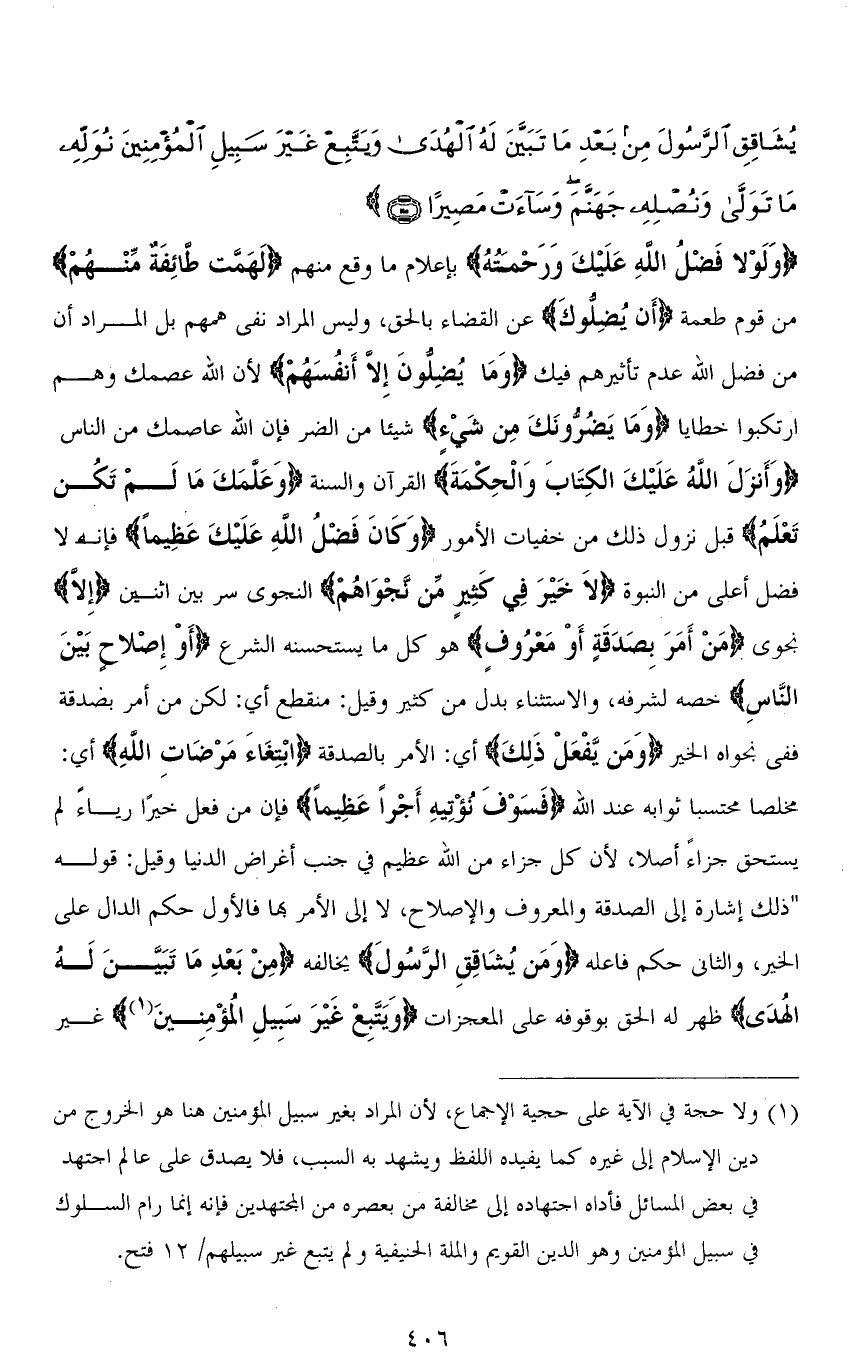 يُشَاقِقِ ٱلرَّسُولَ مِنۢ بَعْدِ مَا تَبَيَّنَ لَهُ ٱلْهُدَىٰ وَيَتَّبِعْ غَيْرَ سَبِيلِ ٱلْمُؤْمِنِينَ نُوَلِّهِۦ
مَا تَوَلَّىٰ وَنُصْلِهِۦ جَهَنَّمَ ۖ وَسَآءَتْ مَصِيرًا ﴿١١٥﴾ ﴾
﴿وَلَوْلا فَضْلُ اللَّهِ عَلَيْكَ وَرَحْمَتُهُ﴾ بإعلام ما وقع منهم ﴿لَهَمَّت طَّائِفَةٌ مِّنْـهُمْ﴾
من قوم طعمة ﴿أَن يُضِلُّوكَ﴾ عن القضاء بالحق، وليس المراد نفى همهم بل المـراد أن
من فضل الله عدم تأثيرهم فيك ﴿وَمَا يُضِلُّونَ إِلاَّ أَنفُسَهُمْ﴾ لأن الله عصمك وهـم
ارتكبوا خطايا ﴿وَمَا يَضُرُّونَكَ مِن شَيْءٍ﴾ شيئا من الضر فإن الله عاصمك من الناس
﴿وَأَنزَلَ اللَّهُ عَلَيْكَ الكِتَابَ وَالْحِكْمَةَ﴾ القرآن والسنة ﴿وَعَلَّمَكَ مَا لَـمْ تَكُـن
تَعْلَمُ﴾ قبل نزول ذلك من خفيات الأمور ﴿وَكَانَ فَضْلُ اللَّهِ عَلَيْكَ عَظِيماً﴾ فإنـه لا
فضل أعلى من النبوة ﴿لاَ خَيْرَ فِي كَثِيرٍ مِّن نَّجْوَاهُمْ﴾ النجوى سر بين اثنـين ﴿إِلاَّ﴾
نجوى ﴿مَنْ أَمَرَ بِصَدَقَةٍ أَوْ مَعْرُوفٍ﴾ هو كل ما يستحسنه الشرع ﴿أَوْ إِصْلاحٍ بَيْنَ
النَّاسِ﴾ خصه لشرفه، والاستثناء بدل من كثير وقيل: منقطع أي: لكن من أمر بصدقة
ففى نجواه الخير ﴿وَمَن يَّفْعَلْ ذَلِكَ﴾ أي: الأمر بالصدقة ﴿ابْتِغَاءَ مَرْضَاتِ اللَّهِ﴾ أي:
مخلصا محتسبا ثوابه عند الله ﴿فَسَوْفَ نُؤْتِيهِ أَجْراً عَظِيماً﴾ فإن من فعل خيرًا ريـاءً لم
يستحق جزاءً أصلا، لأن كل جزاء من الله عظيم في جنب أغراض الدنيا وقيل: قولـه
"ذلك إشارة إلى الصدقة والمعروف والإصلاح، لا إلى الأمر بها فالأول حكم الدال على
الخير، والثانى حكم فاعله ﴿وَمَن يُشَاقِقِ الرَّسُولَ﴾ يخالفه ﴿مِنْ بَعْدِ مَا تَبَيَّـنَ لَـهُ
الهُدَى﴾ ظهر له الحق بوقوفه على المعجزات ﴿وَيَتَّبِعْ غَيْرَ سَبِيلِ المُؤْمِنِـينَ(١)﴾ غـير
(١) ولا حجة في الآية على حجية الإجماع، لأن المراد بغير سبيل المؤمنين هنا هو الخروج من
دين الإسلام إلى غيره كما يفيده اللفظ ويشهد به السبب، فلا يصدق على عالم اجتهد
في بعض المسائل فأداه اجتهاده إلى مخالفة من بعصره من المجتهدين فإنه إنما رام السـلوك
في سبيل المؤمنين وهو الدين القويم والملة الحنيفية ولم يتبع غير سبيلهم/ ١٢ فتح.
٤٠٦